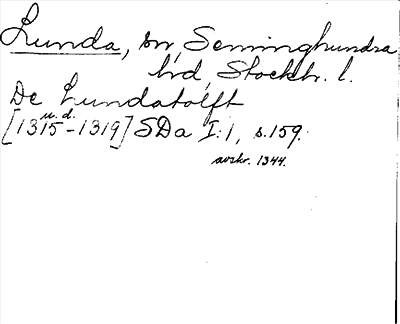 Lunda, sn, Seminghundra
hd, Stockh. l.
De Lundatolft
u. d.
[1315-1319] SDa I:1, s.159.
avskr. 1344.